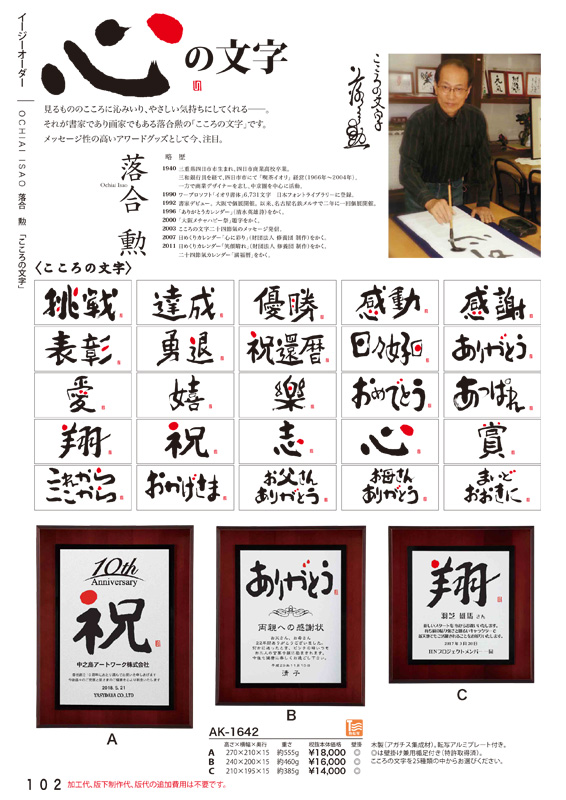 イージーオーダー
OCHIAI ISAO 落合 勲 「こころの文字」
心の文字
見るもののこころに沁みいり、やさしい気持ちにしてくれる――。
それが書家であり画家でもある落合勲の「こころの文字」です。
メッセージ性の高いアワードグッズとして今、注目。
こころの文字
落合 勲
Ochiai Isao
略 歴
1940 三重県四日市市生まれ。四日市市商業高校卒業。
三和銀行員を経て、四日市市にて「喫茶イオリ」経営(1966年~2004年)。
一方で商業デザイナーを志し、中京圏を中心に活動。
1990 ワープロソフト「イオリ書体」6,731文字 日本フォントライブラリーに登録。
1992 書家デビュー。大阪で個展開催。以来、名古屋名鉄メルサで二年に一回個展開催。
1996 「ありがとうカレンダー」(清水英雄詩)をかく。
2000 「大阪メチャハピー祭」題字をかく。
2003 こころの文字二十四節気のメッセージ発信。
2007 日めくりカレンダー「心に彩り」(財団法人 修養団 制作)をかく。
2011 日めくりカレンダー「笑顔晴れ」(財団法人 修養団 制作)をかく。
二十四節気カレンダー「満福暦」をかく。
〈こころの文字〉
挑戦 達成 優勝 感動 感謝
表彰 勇退 祝還暦 日々好日 ありがとう
愛 嬉 樂 おめでとう あっぱれ
翔 祝 志 心 賞
これから ここから おかげさま お父さん ありがとう お母さん ありがとう まいど おおきに
10th
Anniversary
祝
中之島アートワーク株式会社
2018.5.21
YASTINGIA CO.,LTD
A
ありがとう
両親への感謝状
お父さん、お母さん
清子
B
翔
羽芝 雄馬 さん
2017年3月20日
HNプロジェクトメンバー一同
C
AK-1642
高さ×横幅×奥行 重さ 税抜本体価格 壁掛
A 270×210×15 約555g ¥18,000 ◎
B 240×200×15 約460g ¥16,000 ◎
C 210×195×15 約385g ¥14,000 ◎
木製(アガチス集成材)、転写アルミプレート付き。
◎は壁掛け兼用楯足付き(特許取得済)。
こころの文字を25種類の中からお選びください。
102 加工代、版下制作代、版代の追加費用は不要です。